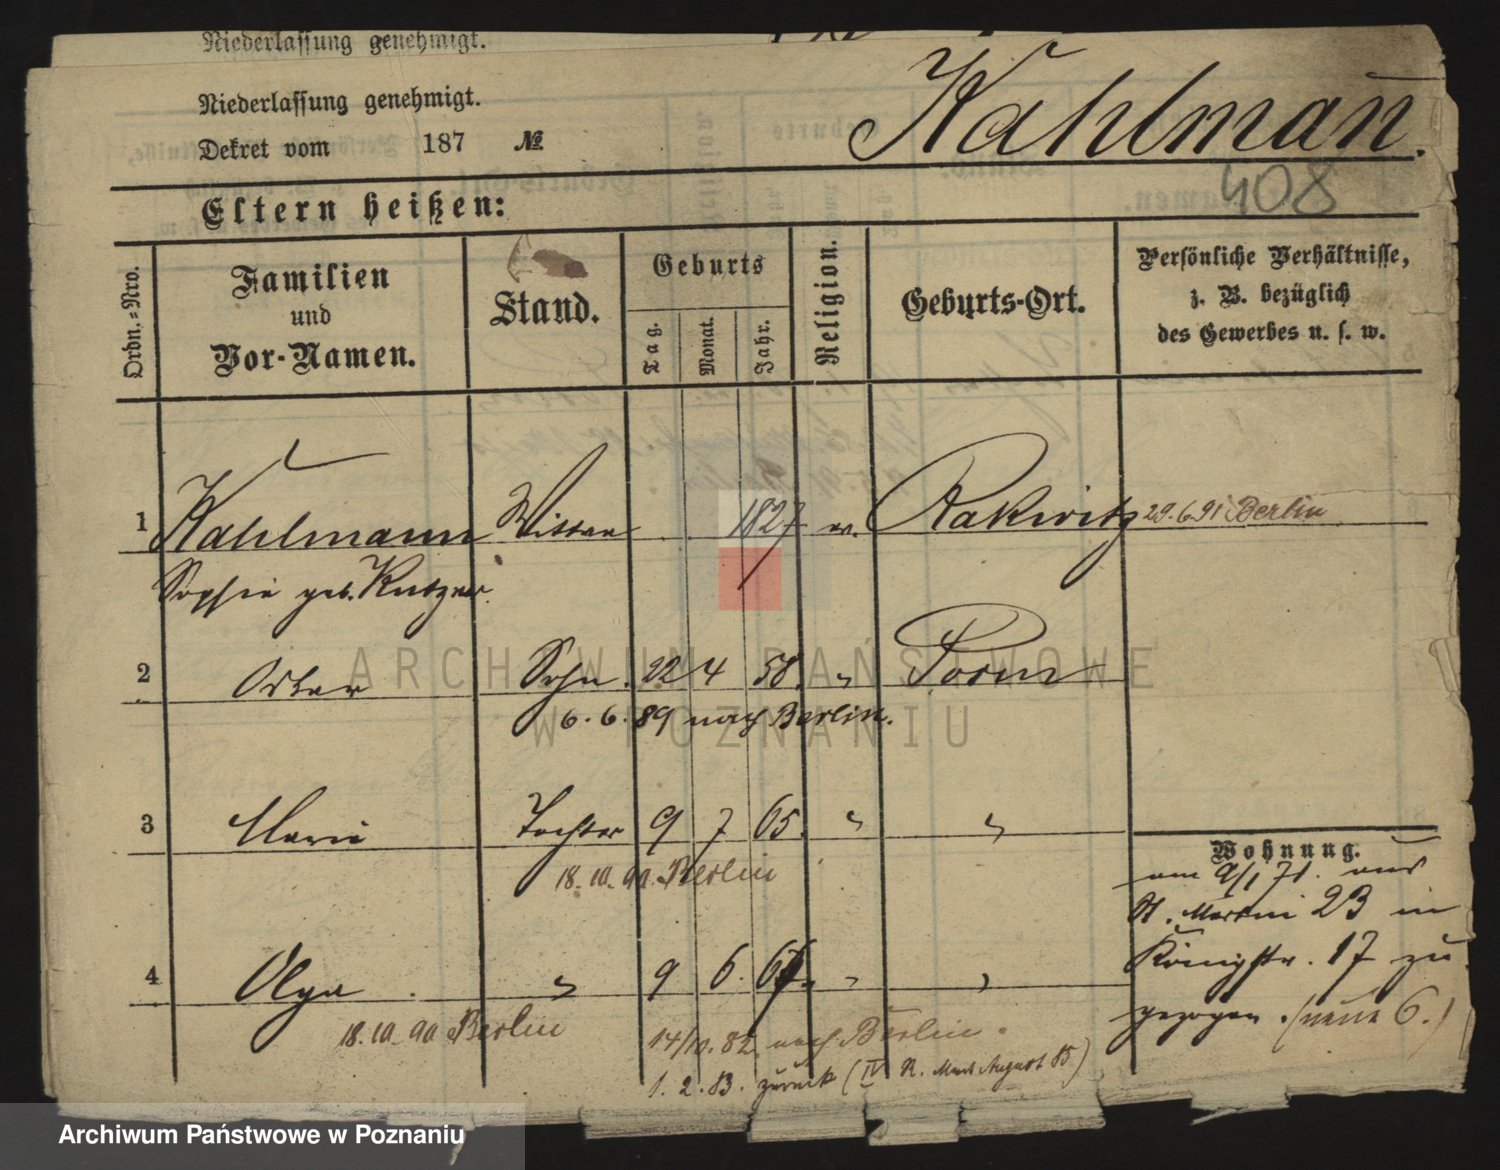 Niederlassung genehmigt.
Niederlassung genehmigt.
Dekret vom 187 №
Kahlman̄.
408
Eltern heißen:
Ordn.-Nro.
Familien und Vor-Namen.
Stand.
Geburts
Tag.
Monat.
Jahr.
Religion.
Geburts-Ort.
Persönliche Verhältnisse,
z. B. bezüglich
des Gewerbes u. s. w.
1 Kahlmann Wittwe 1827 ev. Rakwitz 29.6.91 Berlin
Sophie geb. Kutzner
2 Oskar Sohn. 22 4 58. " Posen
6.6.89 nach Berlin.
3 Marie Tochter 9 7 65. " "
18.10.90 Berlin
Wohnung.
am 9/1 71. aus
St. Martin 23 in
Königstr. 17 zu
gezogen. (neue 6.)
4 Olga " 9 6. " "
18.10.90 Berlin
14/10.82. nach Berlin.
1.2.83. zurück (IV
ARCHIWUM PAŃSTWOWE
W POZNANIU
Archiwum Państwowe w Poznaniu